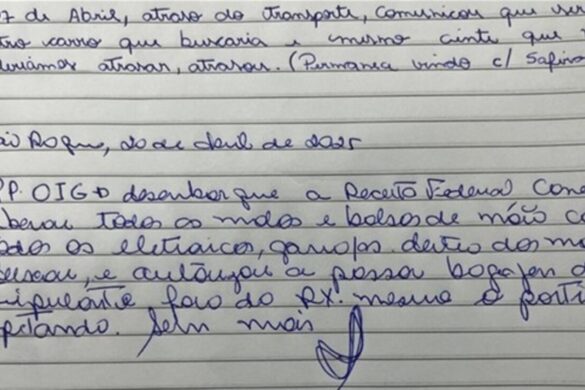 7 de Abril, atraso do transporte, comunicou que
tro carro que buscaria e mesmo cinte que
atrasar, atrasou. (Permanea vindo c/ Safira
ão Roque, 20 de abril de 2025
PP. OIG+ desembarque a Receita Federal Con
berou todos os malas e bolsas de mão c
odos os eletroicos, garrafas dentro das ma
e autorizou a passar bagagem d
fora do RX. mesmo o porti
apitando. Sem mais